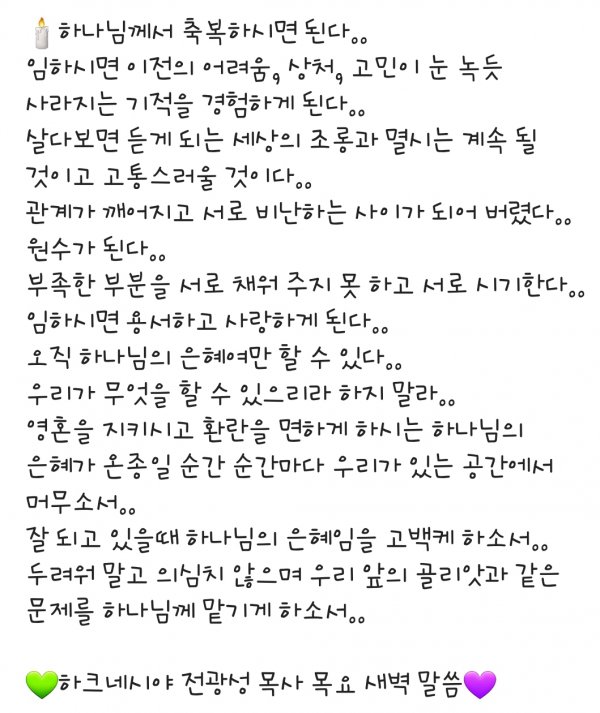 🕯️하나님께서 축복하시면 된다。。
임하시면 이전의 어려움, 상처, 고민이 눈 녹듯
사라지는 기적을 경험하게 된다。。
살다보면 듣게 되는 세상의 조롱과 멸시는 계속 될
것이고 고통스러울 것이다。。
관계가 깨어지고 서로 비난하는 사이가 되어 버렸다。。
원수가 된다。。
부족한 부분을 서로 채워 주지 못 하고 서로 시기한다。。
임하시면 용서하고 사랑하게 된다。。
오직 하나님의 은혜여만 할 수 있다。。
우리가 무엇을 할 수 있으리라 하지 말라。。
영혼을 지키시고 환란을 면하게 하시는 하나님의
은혜가 온종일 순간 순간마다 우리가 있는 공간에서
머무소서。。
잘 되고 있을때 하나님의 은혜임을 고백케 하소서。。
두려워 말고 의심치 않으며 우리 앞의 골리앗과 같은
문제를 하나님께 맡기게 하소서。。
💚하크네시야 전광성 목사 목요 새벽 말씀💜